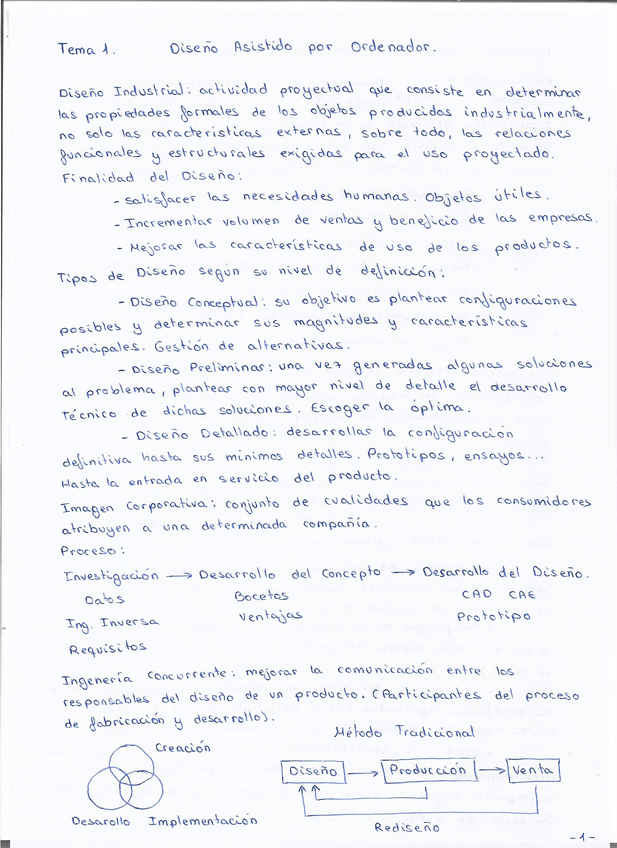 Tema 1. Diseño Asistido por Ordenador.
Diseño Industrial: actividad proyectual que consiste en determinar
las propiedades formales de los objetos producidos industrialmente,
no solo las características externas, sobre todo, las relaciones
funcionales y estructurales exigidas para el uso proyectado.
Finalidad del Diseño:
- Satisfacer las necesidades humanas. Objetos útiles.
- Incrementar volumen de ventas y beneficio de las empresas.
- Mejorar las características de uso de los productos.
Tipos de Diseño según su nivel de definición:
- Diseño Conceptual: su objetivo es plantear configuraciones
posibles y determinar sus magnitudes y características
principales. Gestión de alternativas.
- Diseño Preliminar: una vez generadas algunas soluciones
al problema, plantear con mayor nivel de detalle el desarrollo
técnico de dichas soluciones. Escoger la óptima.
- Diseño Detallado: desarrollar la configuración
definitiva hasta sus mínimos detalles. Prototipos, ensayos...
Hasta la entrada en servicio del producto.
Imagen Corporativa: conjunto de cualidades que los consumidores
atribuyen a una determinada compañía.
Proceso:
Investigación → Desarrollo del Concepto → Desarrollo del Diseño.
Datos Bocetos CAD CAE
Ing. Inversa Ventajas Prototipo
Requisitos
Ingenería Concurrente: mejorar la comunicación entre los
responsables del diseño de un producto. (Participantes del proceso
de fabricación y desarrollo).
Método Tradicional
Creación
Diseño → Producción → Venta
Desarollo Implementación
Rediseño
-1-